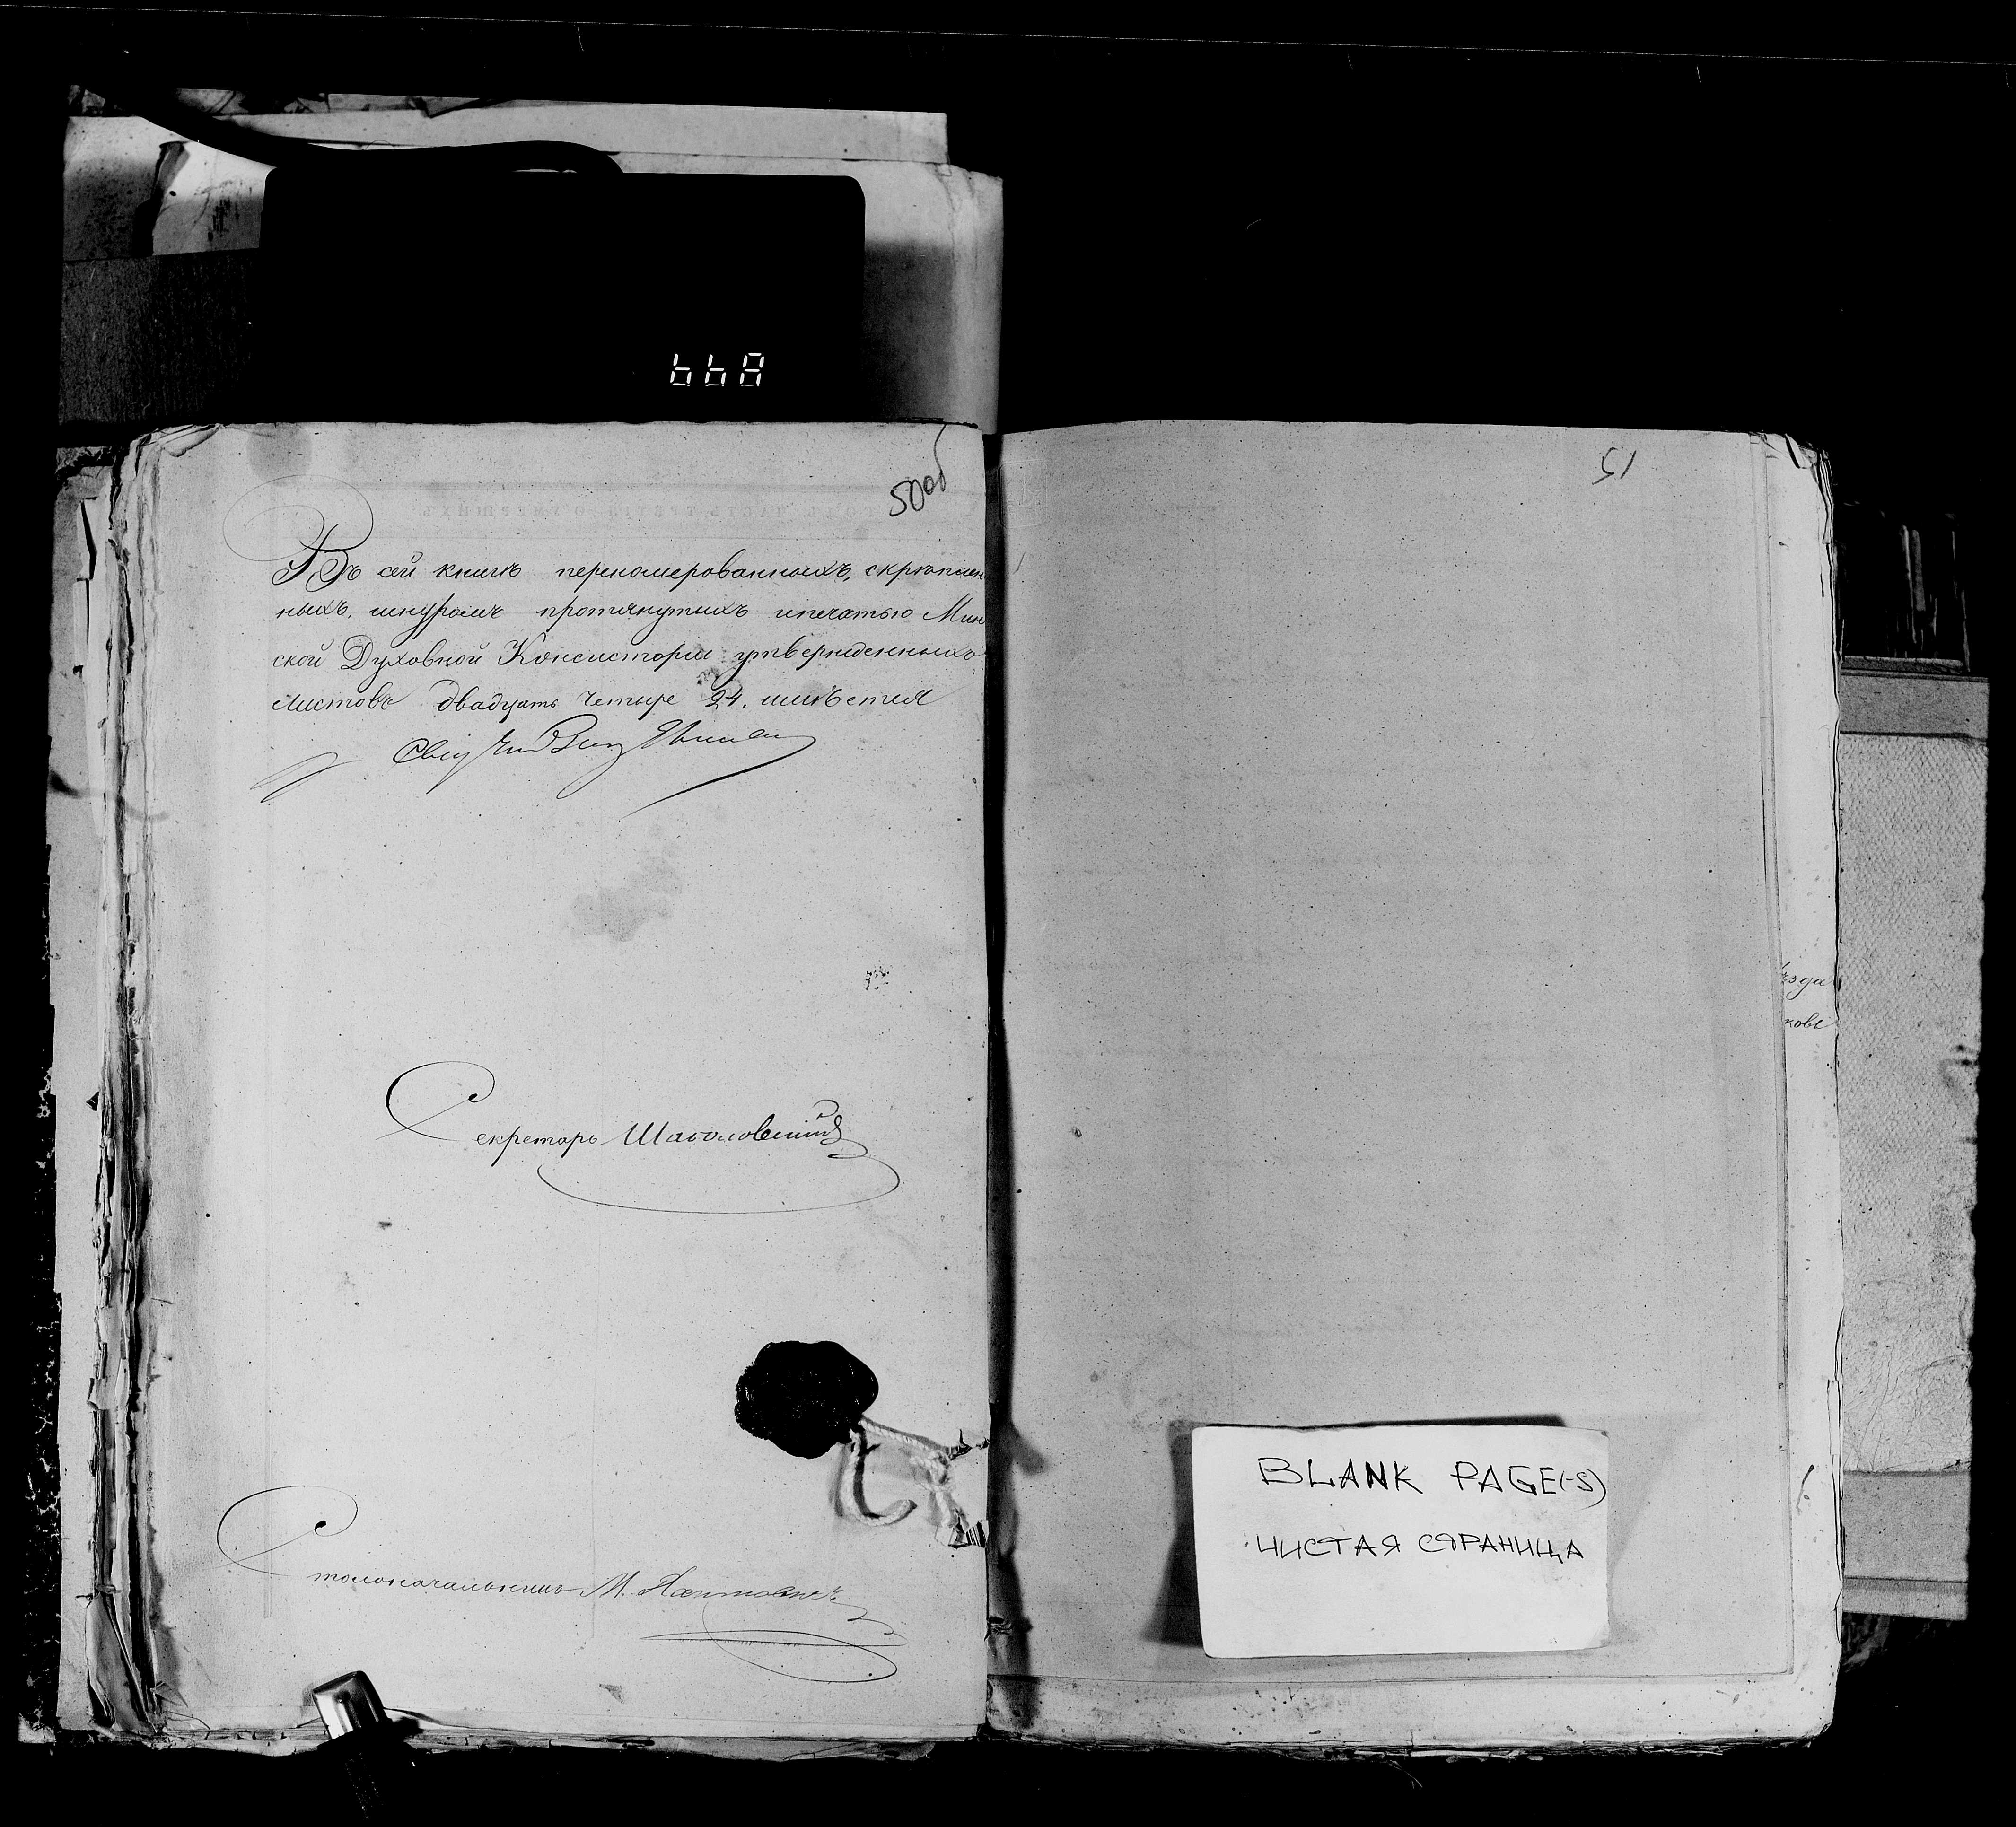 50об
Въ сей книгѣ перономерованныхъ, скрѣплен
ныхъ, шнуромъ протянутыхъ и печатью Мин
ской Духовной Консисторіи утвержденныхъ
листовъ двадцать четыре 24. имѣется
Секретарь
Столоначальникъ М.
51
BLANK PAGE(-S)
ЧИСТАЯ СТРАНИЦА